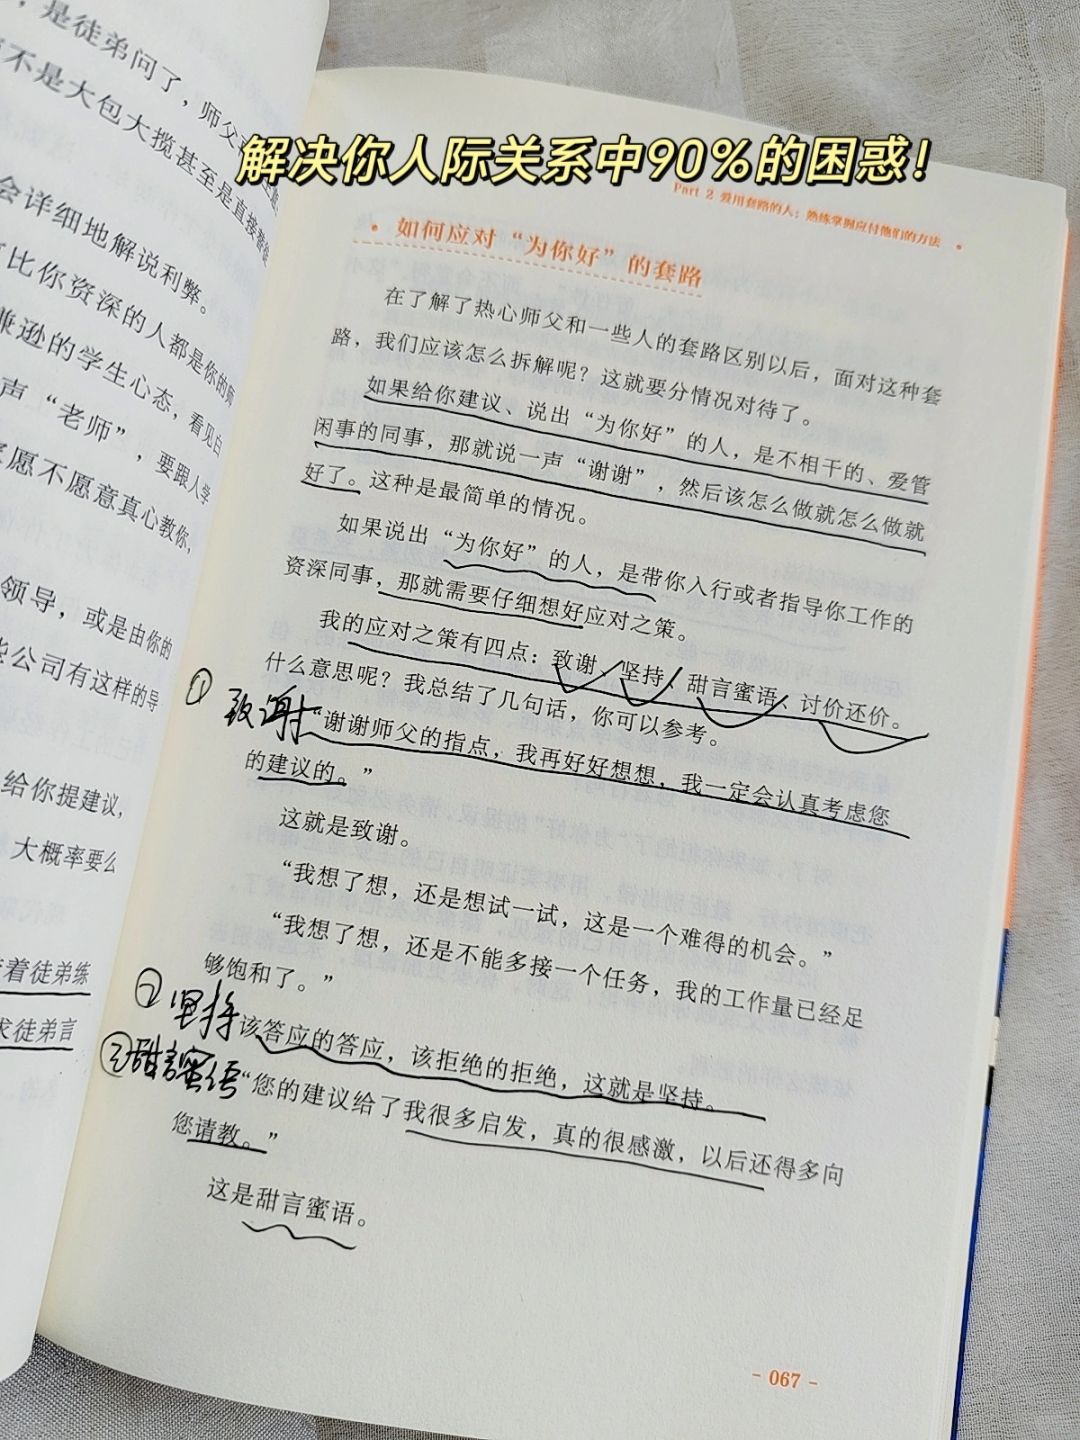 解决你人际关系中90%的困惑！
，是徒弟问了，师父
不是大包大揽甚至是直接替
会详细地解说利弊。
比你资深的人都是你的师
谦逊的学生心态，看见白
声“老师”，要跟人学
愿不愿意真心教你，
领导，或是由你的
些公司有这样的导
给你提建议，
大概率要么
着徒弟练
求徒弟言
Part 2 爱用套路的人：熟练掌握应付他们的方法
·如何应对“为你好”的套路
在了解了热心师父和一些人的套路区别以后，面对这种套
路，我们应该怎么拆解呢？这就要分情况对待了。
如果给你建议、说出“为你好”的人，是不相干的、爱管
闲事的同事，那就说一声“谢谢”，然后该怎么做就怎么做就
好了。这种是最简单的情况。
如果说出“为你好”的人，是带你入行或者指导你工作的
资深同事，那就需要仔细想好应对之策。
我的应对之策有四点：致谢、坚持、甜言蜜语、讨价还价。
什么意思呢？我总结了几句话，你可以参考。
① 致谢
“谢谢师父的指点，我再好好想想，我一定会认真考虑您
的建议的。”
这就是致谢。
“我想了想，还是想试一试，这是一个难得的机会。”
“我想了想，还是不能多接一个任务，我的工作量已经足
够饱和了。”
② 坚持
该答应的答应，该拒绝的拒绝，这就是坚持。
③ 甜言蜜语
“您的建议给了我很多启发，真的很感激，以后还得多向
您请教。”
这是甜言蜜语。
- 067 -